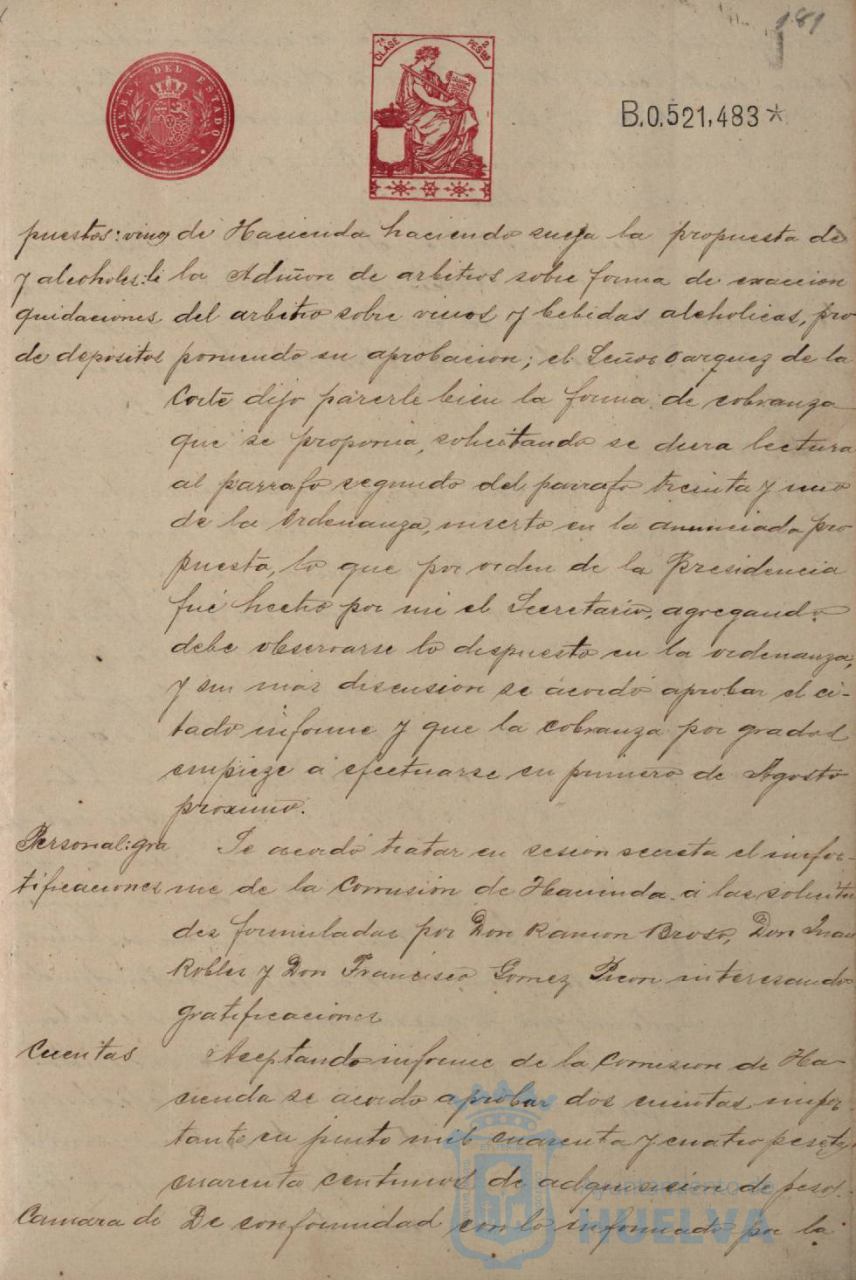 181
TIMBRE DEL ESTADO
7ª CLASE 2 PESTAS
B.0.521,483*
puestos: vinos de Hacienda haciendo suya la propuesta de
y alcoholes: li la Admon de arbitrios sobre forma de exaccion
quidaciones del arbitrio sobre vinos y bebidas alcoholicas, pro
de depositos poniendo su aprobacion; el Señor Vazquez de la
Corte dijo parecerle bien la forma de cobranza
que se proponia, solicitando se diera lectura
al parrafo segundo del parrafo treinta y uno
de la Ordenanza, inserto en la anunciada pro
puesta, lo que por orden de la Presidencia
fué hecho por mi el Secretario, agregando
debe observarse lo dispuesto en la ordenanza,
y sin mas discusion se acordó aprobar el ci-
tado informe y que la cobranza por grados
empieze á efectuarse en primero de Agosto
proximo.
Personal: gra Se acordó tratar en sesion secreta el infor-
tificaciones me de la Comisión de Hacienda á las solicitu
des formuladas por Don Ramon Don Juan
Robles y Don Francisco Gomez interesando
gratificaciones
Cuentas Aceptando informe de la Comision de Ha-
cienda se acordo aprobar dos cuentas impor
tante en junto mil cuarenta y cuatro pesetas
cuarenta centimos de adquisicion de pesos.
Camara de De conformidad con lo informado por la
AYUNTAMIENTO DE
HUELVA